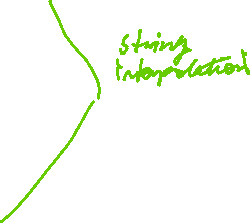 string
Interpolation